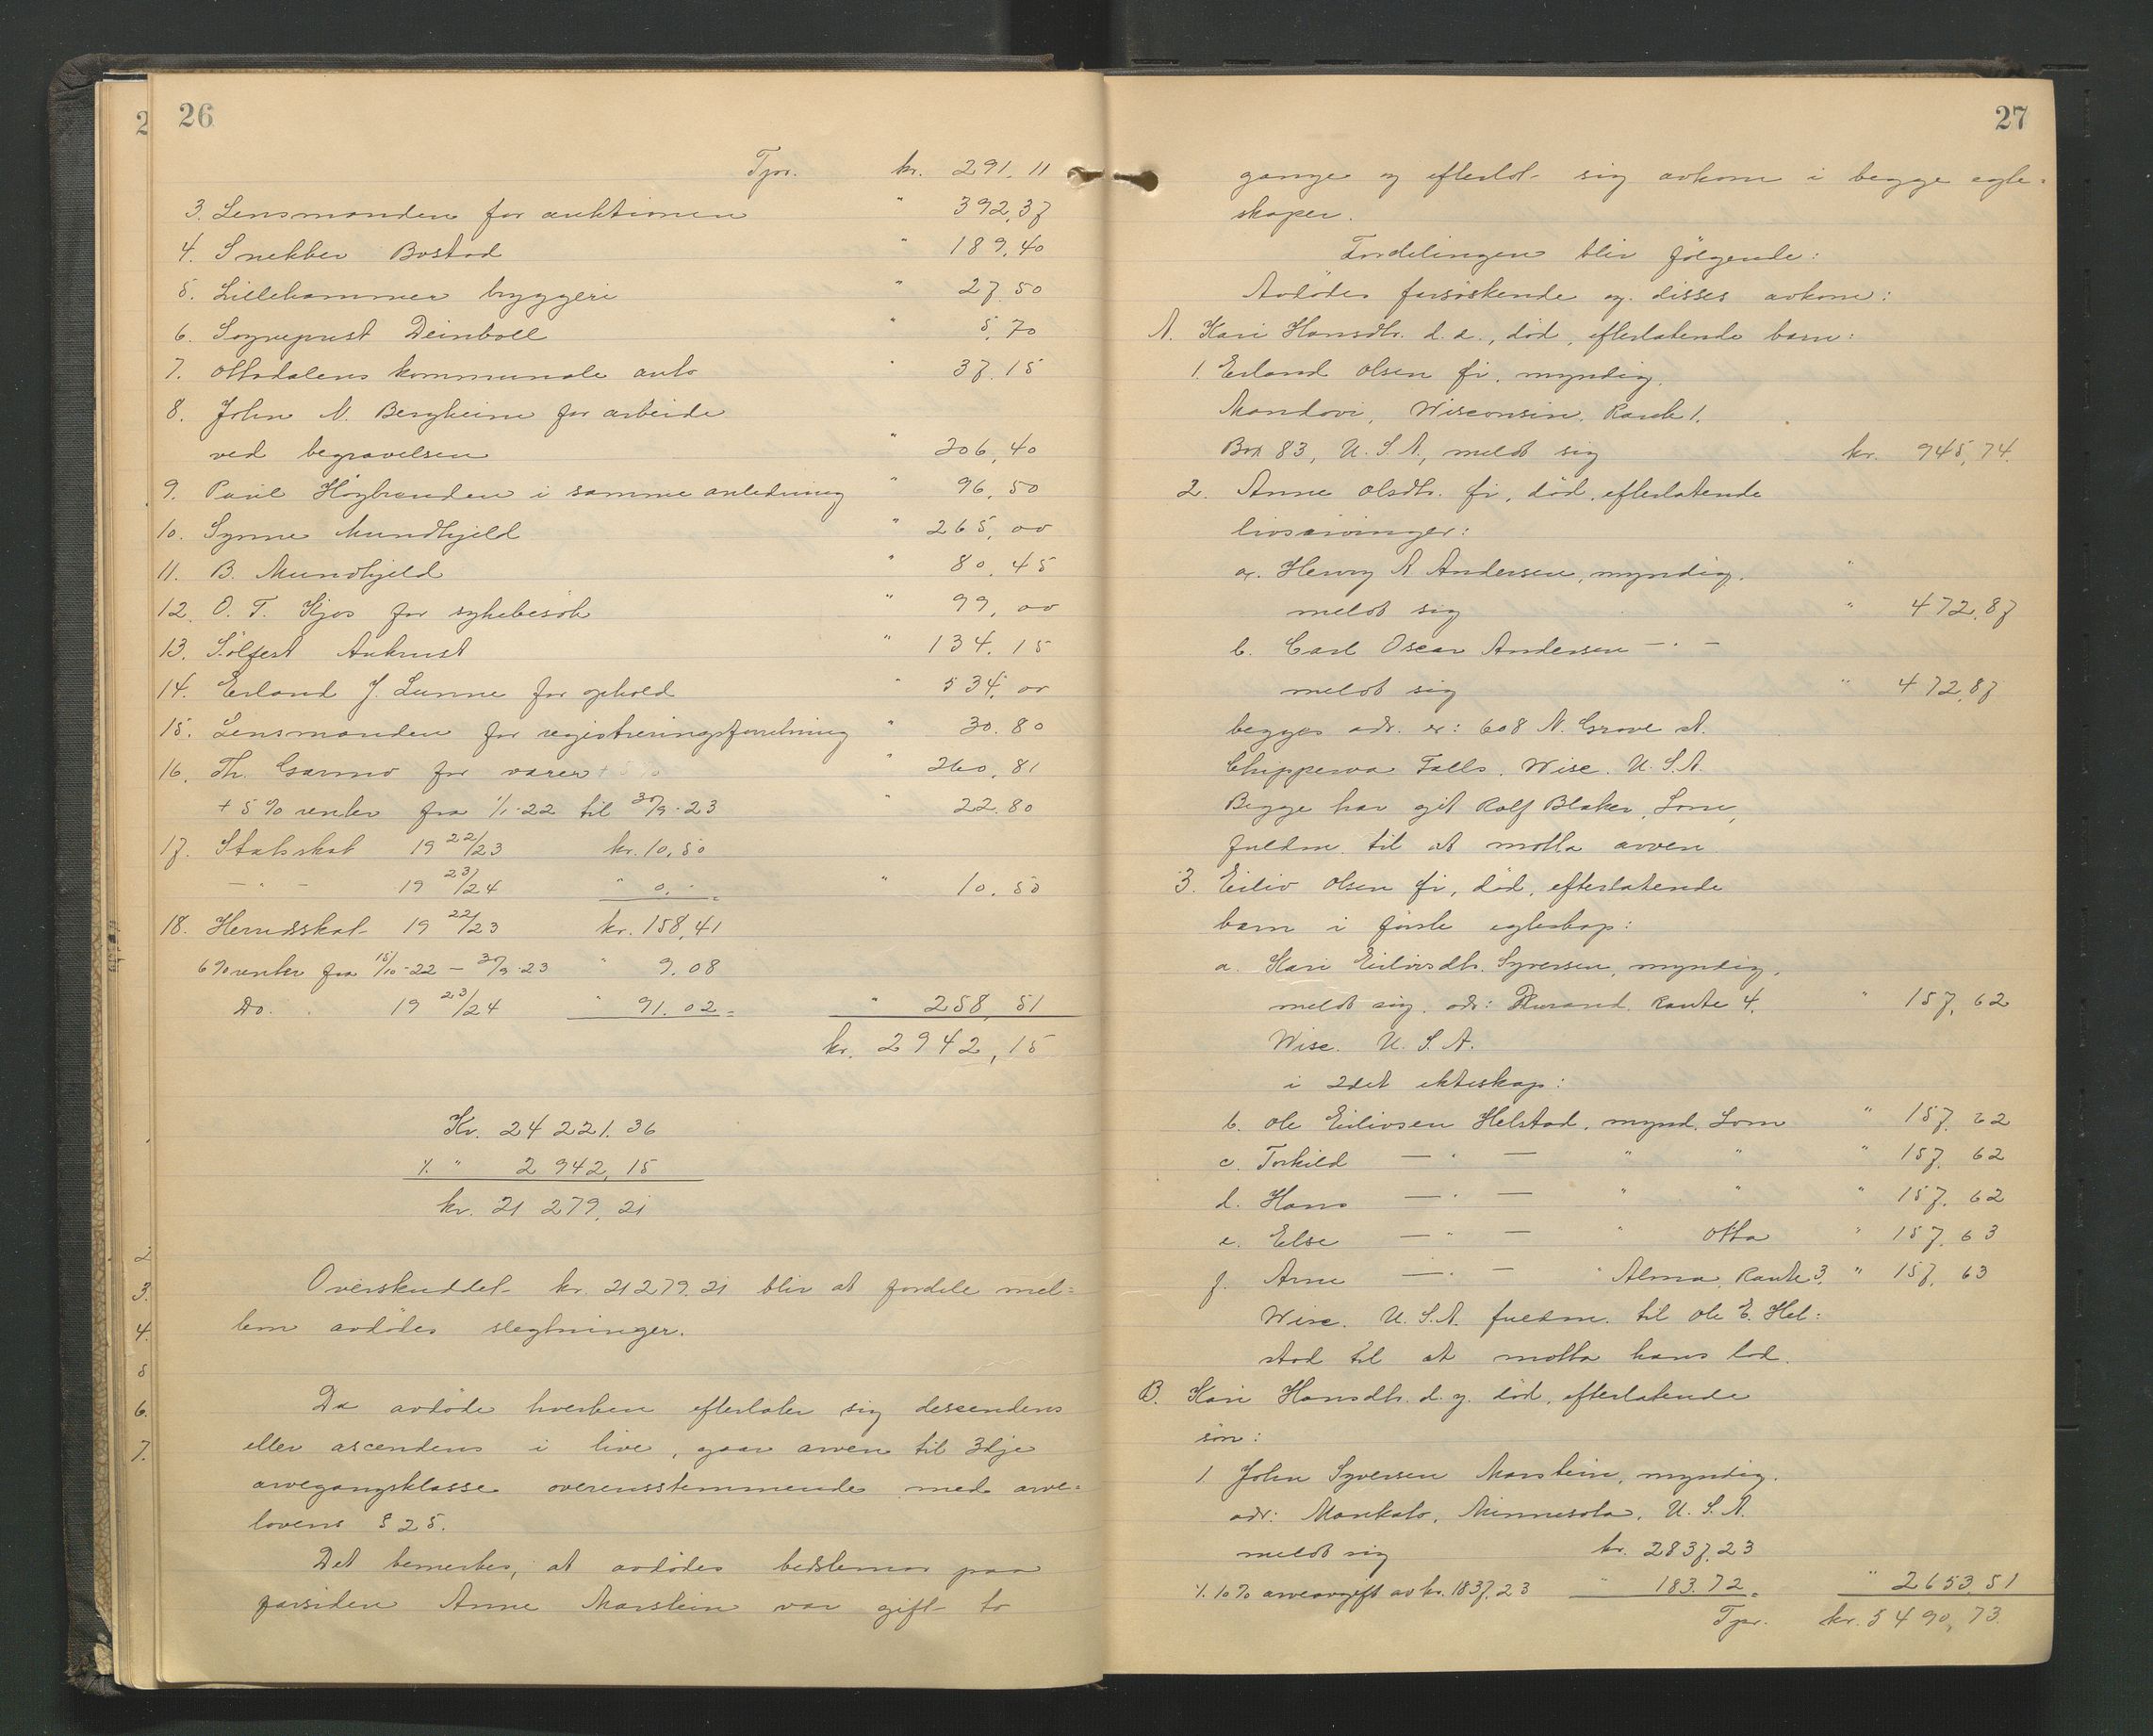 26
Tpr. kr. 291.11
3. Lensmanden for auktionen " 392,37
4. Snekker Bostad " 189,40
5. Lillehammer bryggeri " 27.50
6. Sogneprest Deinboll " 5.70
7. Ottadalens kommunale auto " 37.15
8. John N. Bergheim for arbeide
ved begravelsen " 206,40
9. Paul Høgbranden i samme anledning " 96,50
10. Synne Mundhjeld " 265,00
11. B. Mundhjeld " 80.45
12. O. T. Kjos for sykebesøk " 99,00
13. Sølfest Aukrust " 134.15
14. Erland J. Lunne for ophold " 534,00
15. Lensmanden for registreringsforretning " 30.80
16. Th. Garmo for varer " 260,81
+ 5% renter fra 1/1-22 til 30/9-23 " 22.80
17. Statsskat 19 22/23 kr. 10,50
— " — 19 23/24 " 0,- = " 10.50
18. Herredsskat 19 22/23 kr. 158,41
6% renter fra 15/10-22 – 30/9-23 " 9.08
Do. 19 23/24 " 91.02 = " 258,51
kr. 2942,15
Kr. 24 221.36
÷ " 2 942,15
kr. 21 279,21
Overskuddet kr. 21 279.21 blir at fordele mel=
lem avdødes slegtninger.
Da avdøde hverken efterlater sig descendens
eller ascendens i live, gaar arven til 3dje
arvegangsklasse overensstemmende med arve=
lovens § 25.
Det bemerkes, at avdødes bedstemor paa
farsiden Anne Marstein var gift to
27
gange og efterlot sig avkom i begge egte=
skaper.
Fordelingen blir følgende:
Avdødes farsøskende og disses avkom:
A. Kari Hansdtr. d. e., død, efterlatende barn:
1. Erland Olsen Fi, myndig,
Mondovi, Wisconsin, Route 1,
Box 83, U. S. A., meldt sig kr. 945,74.
2. Anne Olsdtr. Fi, død, efterlatende
livsarvinger:
a. Henry A Andersen, myndig,
meldt sig " 472,87
b. Carl Oscar Andersen — " —
meldt sig " 472,87
begges adr. er: 608 N. Grove St.
Chippewa Falls, Wisc. U. S. A.
Begge har git Rolf Blaker, Lom,
fuldm. til at motta arven
3. Eiliv Olsen Fi, død, efterlatende
barn i første egteskap:
a. Kari Eilivsdtr. Syversen, myndig,
meldt sig. adr: Durand, Route 4, " 157,62
Wisc. U. S. A.
i 2det ekteskap:
b. Ole Eilivsen Helstad, mynd. Lom " 157,62
c. Torkild — " — " " " 157,62
d. Hans — " — " " " 157,62
e. Else — " — " Otta " 157,63
f. Arne — " — " Alma, Route 3, " 157,63
Wisc. U. S. A. fuldm. til Ole E. Hel=
stad til at motta hans lod.
B. Kari Hansdtr. d. y. død, efterlatende
søn:
1. John Syversen Marstein, myndig.
adr: Mankato, Minnesota, U. S. A.
meldt sig kr. 2837,23
÷ 10% arveavgift av kr. 1837,23 " 183.72 = " 2653,51
Tpr. kr. 5490,73.
2
2
3.
4.
5
6.
7.